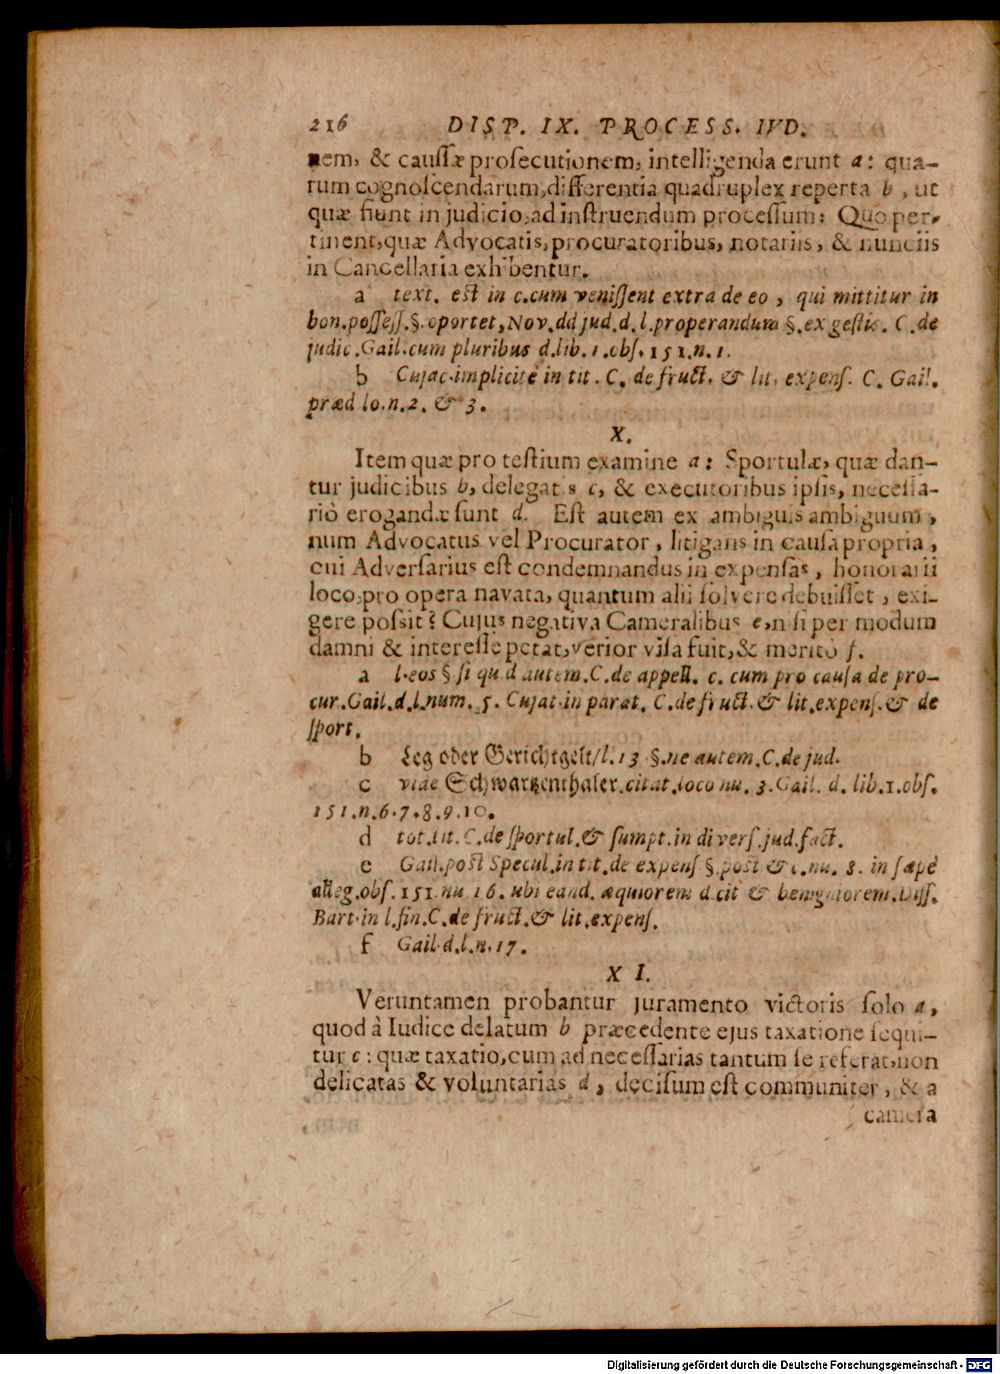 216 DISP. IX. PROCESS. IVD.
nem, & causſæ proſecutionem, intelligenda erunt a: qua-
rum cognoſcendarum, differentia quadruplex reperta b, ut
quæ fiunt in judicio, ad inſtruendum proceſſum: Quo per-
tinent, quæ Advocatis, procuratoribus, notariis, & nunciis
in Cancellaria exhibentur.
a text. eſt in c. cum veniſſent extra de eo, qui mittitur in
bon. poſſeſſ. §. oportet, Nov. dd jud. d. l. properandum §. ex geſtis. C. de
judic. Gail. cum pluribus d. lib. 1. obſ. 151. n. 1.
b Cujac. implicitè in tit. C. de fruct. & lit. expenſ. C. Gail.
præd lo. n. 2. & 3.
X.
Item quæ pro teſtium examine a: Sportulæ, quæ dan-
tur judicibus b, delegatis c, & executoribus ipſis, neceſſa-
riò erogandæ ſunt d. Eſt autem ex ambiguis ambiguum,
num Advocatus vel Procurator, litigans in cauſa propria,
cui Adverſarius eſt condemnandus in expenſas, honorarii
loco, pro opera navata, quantum alii ſolvere debuiſſet, exi-
gere poſsit? Cujus negativa Cameralibus e, niſi per modum
damni & intereſſe petat, verior viſa fuit, & meritò f.
a l. eos § ſi quid autem. C. de appell. c. cum pro cauſa de pro-
cur. Gail. d. l. num. 5. Cujat. in parat. C. de fruct. & lit. expenſ. & de
ſport.
b Leg oder Gerichtgelt / l. 13 §. ne autem. C. de jud.
c viae Schwartzenthaler. citat. loco nu. 3. Gail. d. lib. 1. obſ.
151. n. 6. 7. 8. 9. 10.
d tot. tit. C. de ſportul. & ſumpt. in diverſ. jud. fact.
e Gail. poſt Specul. in tit. de expenſ §. poſt & c. nu. 8. in ſæpè
alleg. obſ. 151. nu. 16. ubi eand. æquiorem dicit & benigniorem. Diſſ.
Bart. in l. fin. C. de fruct. & lit. expenſ.
f Gail. d. l. n. 17.
XI.
Veruntamen probantur juramento victoris ſolo a,
quod à Iudice delatum b præcedente ejus taxatione ſequi-
tur c: quæ taxatio, cum ad neceſſarias tantum ſe referat, non
delicatas & voluntarias d, deciſum eſt communiter, & a
camera
Digitalisierung gefördert durch die Deutsche Forschungsgemeinschaft - DFG